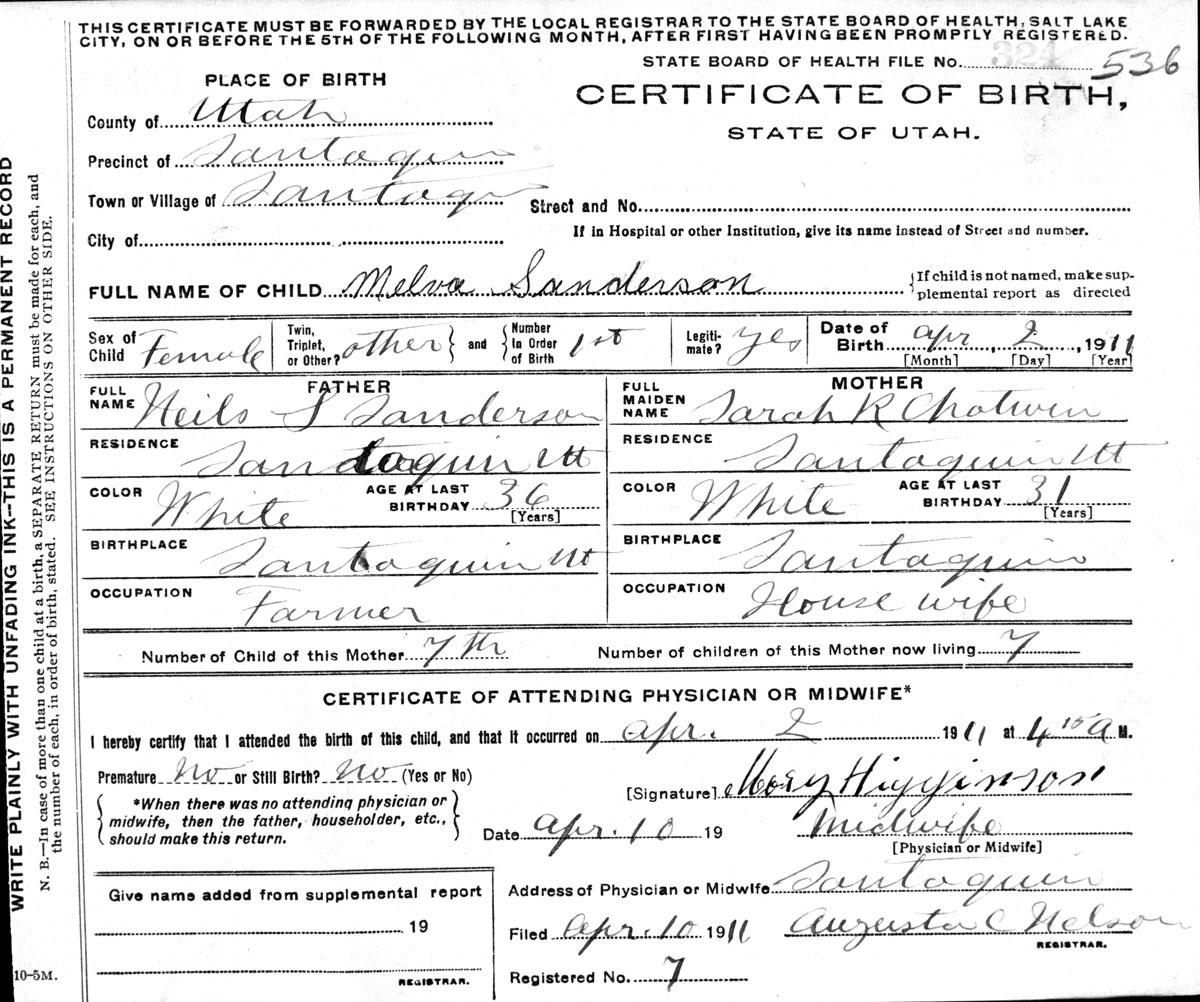 THIS CERTIFICATE MUST BE FORWARDED BY THE LOCAL REGISTRAR TO THE STATE BOARD OF HEALTH, SALT LAKE
CITY, ON OR BEFORE THE 5TH OF THE FOLLOWING MONTH, AFTER FIRST HAVING BEEN PROMPTLY REGISTERED.
STATE BOARD OF HEALTH FILE No. 324 536
PLACE OF BIRTH
CERTIFICATE OF BIRTH,
STATE OF UTAH.
County of Utah
Precinct of Santaquin
Town or Village of Santaq
Street and No.
City of
If in Hospital or other Institution, give its name instead of Street and number.
FULL NAME OF CHILD Melva Sanderson
{If child is not named, make sup-
plemental report as directed
Sex of Child Female
Twin, Triplet, or Other? other } and { Number In Order of Birth 1st
Legiti-mate? yes
Date of Birth Apr 2, 1911
[Month] [Day] [Year]
FATHER
FULL NAME Neils S Sanderson
RESIDENCE Santaquin Ut
COLOR White AGE AT LAST BIRTHDAY 36 [Years]
BIRTHPLACE Santaquin Ut
OCCUPATION Farmer
MOTHER
FULL MAIDEN NAME Sarah R Chatwin
RESIDENCE Santaquin Ut
COLOR White AGE AT LAST BIRTHDAY 31 [Years]
BIRTHPLACE Santaquin
OCCUPATION House wife
Number of Child of this Mother 7th Number of children of this Mother now living 7
CERTIFICATE OF ATTENDING PHYSICIAN OR MIDWIFE*
I hereby certify that I attended the birth of this child, and that it occurred on Apr. 2 1911 at 4 15 A M.
Premature No or Still Birth? No (Yes or No)
[Signature] Mary Higginson
{ *When there was no attending physician or
midwife, then the father, householder, etc.,
should make this return. }
Date Apr. 10 19
Midwife
[Physician or Midwife]
Give name added from supplemental report
19
REGISTRAR.
Address of Physician or Midwife Santaquin
Filed Apr. 10 1911 Augusta C Nelson
REGISTRAR.
Registered No. 7
WRITE PLAINLY WITH UNFADING INK--THIS IS A PERMANENT RECORD
N. B.—In case of more than one child at a birth, a SEPARATE RETURN must be made for each, and
the number of each, in order of birth, stated. SEE INSTRUCTIONS ON OTHER SIDE.
10-5M.